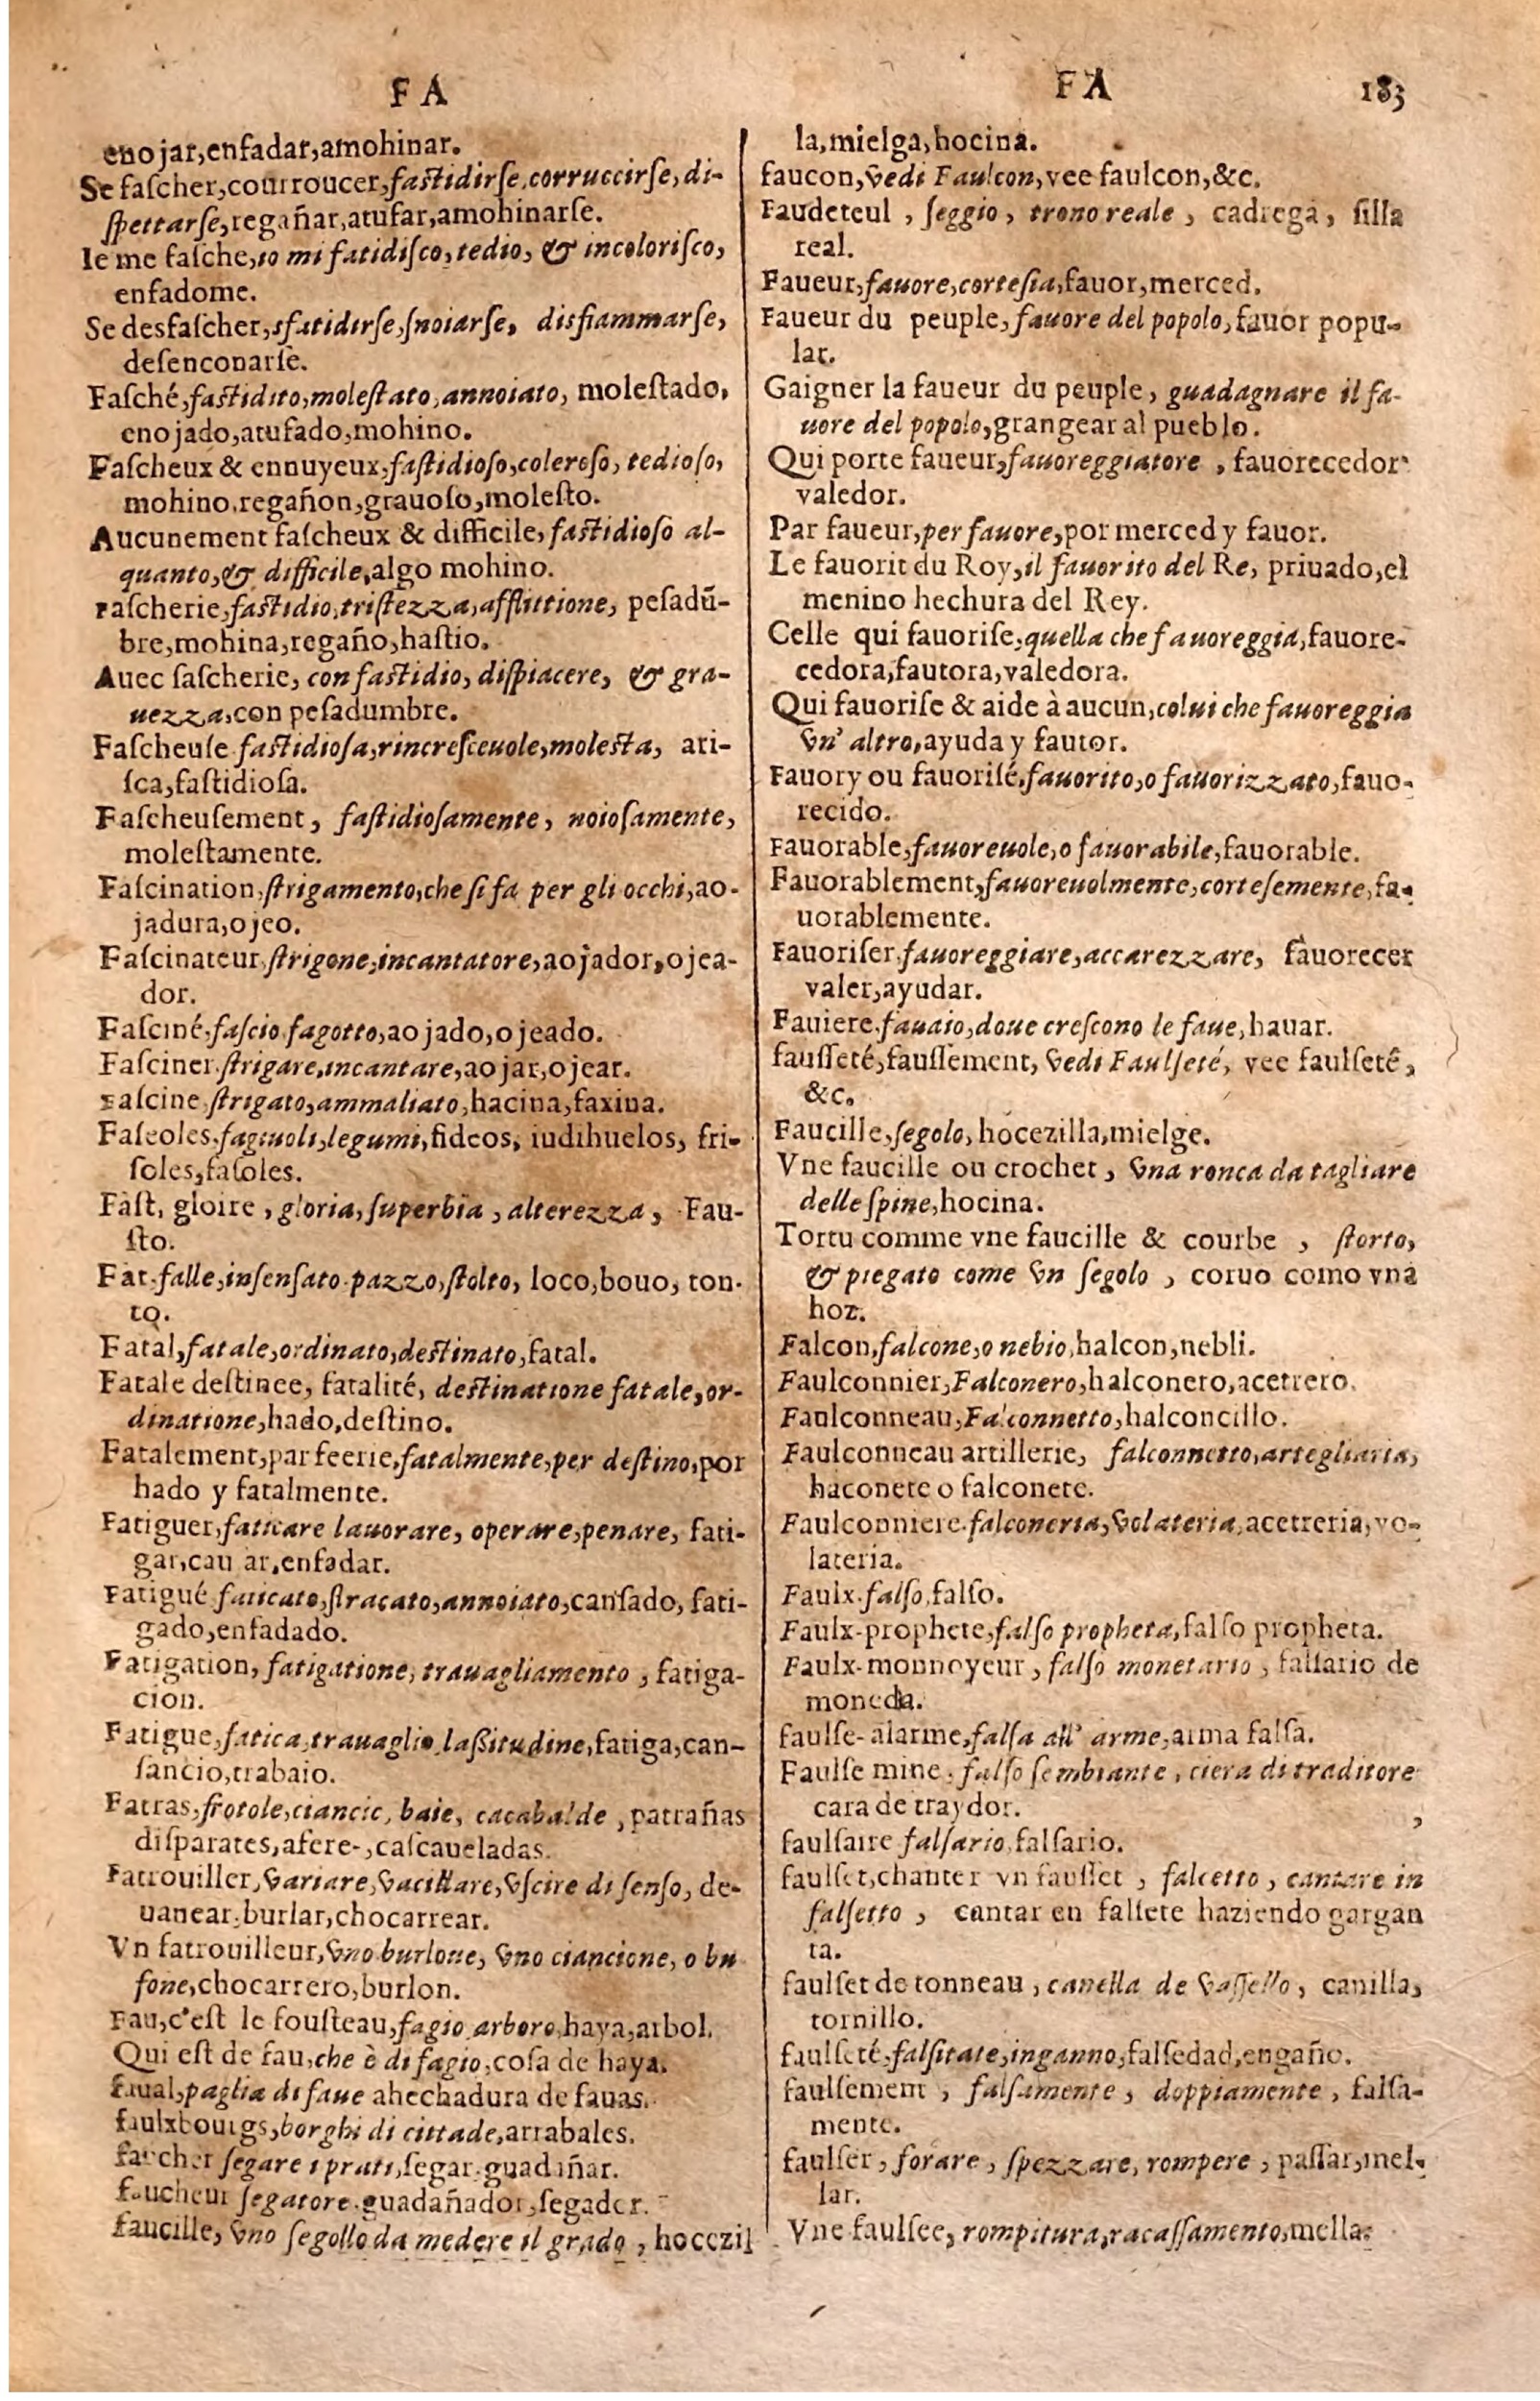 FA
enojar,enfadar,amohinar.
Se faſcher,courroucer,faſtidirſe,corruccirſe,di-
ſpettarſe,regañar,atufar,amohinarſe.
Ie me faſche,io mi fatidiſco,tedio, & incoloriſco,
enfadome.
Se desfaſcher,sfatidirſe,ſnoiarſe, disfiammarſe,
deſenconarſe.
Faſché,faſtidito,moleſtato,annoiato, moleſtado,
enojado,atufado,mohino.
Faſcheux & ennuyeux,faſtidioſo,coleroſo, tedioſo,
mohino,regañon,grauoſo,moleſto.
Aucunement faſcheux & difficile,faſtidioſo al-
quanto,& difficile,algo mohino.
Faſcherie,faſtidio,triſtezza,afflittione, peſadū-
bre,mohina,regaño,haſtio.
Auec faſcherie, con faſtidio, diſpiacere, & gra-
uezza,con peſadumbre.
Faſcheuſe faſtidioſa,rincreſceuole,moleſta, ari-
ſca,faſtidioſa.
Faſcheuſement, faſtidioſamente, noioſamente,
moleſtamente.
Faſcination,ſtrigamento,che ſi fa per gli occhi,ao-
jadura,ojeo.
Faſcinateur,ſtrigone,incantatore,aojador,ojea-
dor.
Faſciné,faſcio fagotto,aojado,ojeado.
Faſciner.ſtrigare,incantare,aojar,ojear.
Faſcine ſtrigato,ammaliato,hacina,faxina.
Faſeoles,fagiuoli,legumi,fideos, iudihuelos, fri-
ſoles,faſoles.
Faſt, gloire , gloria,ſuperbia , alterezza, Fau-
ſto.
Fat.falle,inſenſato pazzo,ſtolto, loco,bouo, ton-
to.
Fatal,fatale,ordinato,deſtinato,fatal.
Fatale deſtinee, fatalité, deſtinatione fatale,or-
dinatione,hado,deſtino.
Fatalement,par feerie,fatalmente,per deſtino,por
hado y fatalmente.
Fatiguer,faticare lauorare, operare,penare, fati-
gar,cau ar,enfadar.
Fatigué faticato,ſtracato,annoiato,canſado, fati-
gado,enfadado.
Fatigation, fatigatione, trauagliamento , fatiga-
cion.
Fatigue,fatica,trauaglio,laßitudine,fatiga,can-
ſancio,trabaio.
Fatras,frotole,ciancie, baie, cacabalde , patrañas
diſparates,afere-,caſcaueladas.
Fatrouiller,variare,vacillare,vſcire di ſenſo, de-
uanear,burlar,chocarrear.
Vn fatrouilleur,vno burlone, vno ciancione, o bu
fone,chocarrero,burlon.
Fau,c'eſt le fouſteau,fagio arbore,haya,arbol.
Qui eſt de fau,che è di fagio,coſa de haya.
faual,paglia di faue ahechadura de fauas.
faulxbourgs,borghi di cittade,arrabales.
faucher ſegare i prati,ſegar.guadañar.
faucheur ſegatore.guadañador,ſegador.
faucille, vno ſegollo da medere il grado , hocezil
FA 183
la,mielga,hocina.
faucon,vedi Faulcon,vee faulcon,&c.
Faudeteul , ſeggio, trono reale , cadrega, ſilla
real.
Faueur,fauore,corteſia,fauor,merced.
Faueur du peuple,fauore del popolo,fauor popu-
lar.
Gaigner la faueur du peuple, guadagnare il fa-
uore del popolo,grangear al pueblo.
Qui porte faueur,fauoreggiatore , fauorecedor
valedor.
Par faueur,per fauore,por merced y fauor.
Le fauorit du Roy,il fauorito del Re, priuado,el
menino hechura del Rey.
Celle qui fauoriſe,quella che fauoreggia,fauore-
cedora,fautora,valedora.
Qui fauoriſe & aide à aucun,colui che fauoreggia
vn' altro,ayuda y fautor.
Fauory ou fauoriſé,fauorito,o fauorizzato,fauo-
recido.
Fauorable,fauoreuole,o fauorabile,fauorable.
Fauorablement,fauoreuolmente,corteſemente,fa-
uorablemente.
Fauoriſer,fauoreggiare,accarezzare, fauorecer
valer,ayudar.
Fauiere,fauaio,doue creſcono le faue,hauar.
fauſſeté,fauſſement, vedi Faulſeté, vee faulſeté,
&c.
Faucille,ſegolo, hocezilla,mielge.
Vne faucille ou crochet, vna ronca da tagliare
delle ſpine,hocina.
Tortu comme vne faucille & courbe , ſtorto,
& piegato come vn ſegolo , coruo como vna
hoz.
Falcon,falcone,o nebio,halcon,nebli.
Faulconnier,Falconero,halconero,acetrero.
Faulconneau,Falconnetto,halconcillo.
Faulconneau artillerie, falconnetto,artegliaria,
haconete o falconete.
Faulconniere.falconeria,volateria,acetreria,vo-
lateria.
Faulx.falſo,falſo.
Faulx-prophete,falſo propheta,falſo propheta.
Faulx-monnoyeur , falſo monetario , falſario de
moneda.
faulſe-alarme,falſa all' arme,arma falſa.
Faulſe mine, falſo ſembiante , ciera di traditore
cara de traydor. ,
faulſaire falſario,falſario.
faulſet,chanter vn fauſſet , falcetto , cantare in
falſetto , cantar en falſete haziendo gargan
ta.
faulſet de tonneau , canella de vaſſello, canilla,
tornillo.
faulſeté,falſitate,inganno,falſedad,engaño.
faulſement , falſamente , doppiamente , falſa-
mente.
faulſer, forare, ſpezzare, rompere , paſſar,mel-
lar.
Vne faulſee, rompitura,racaſſamento,mella.